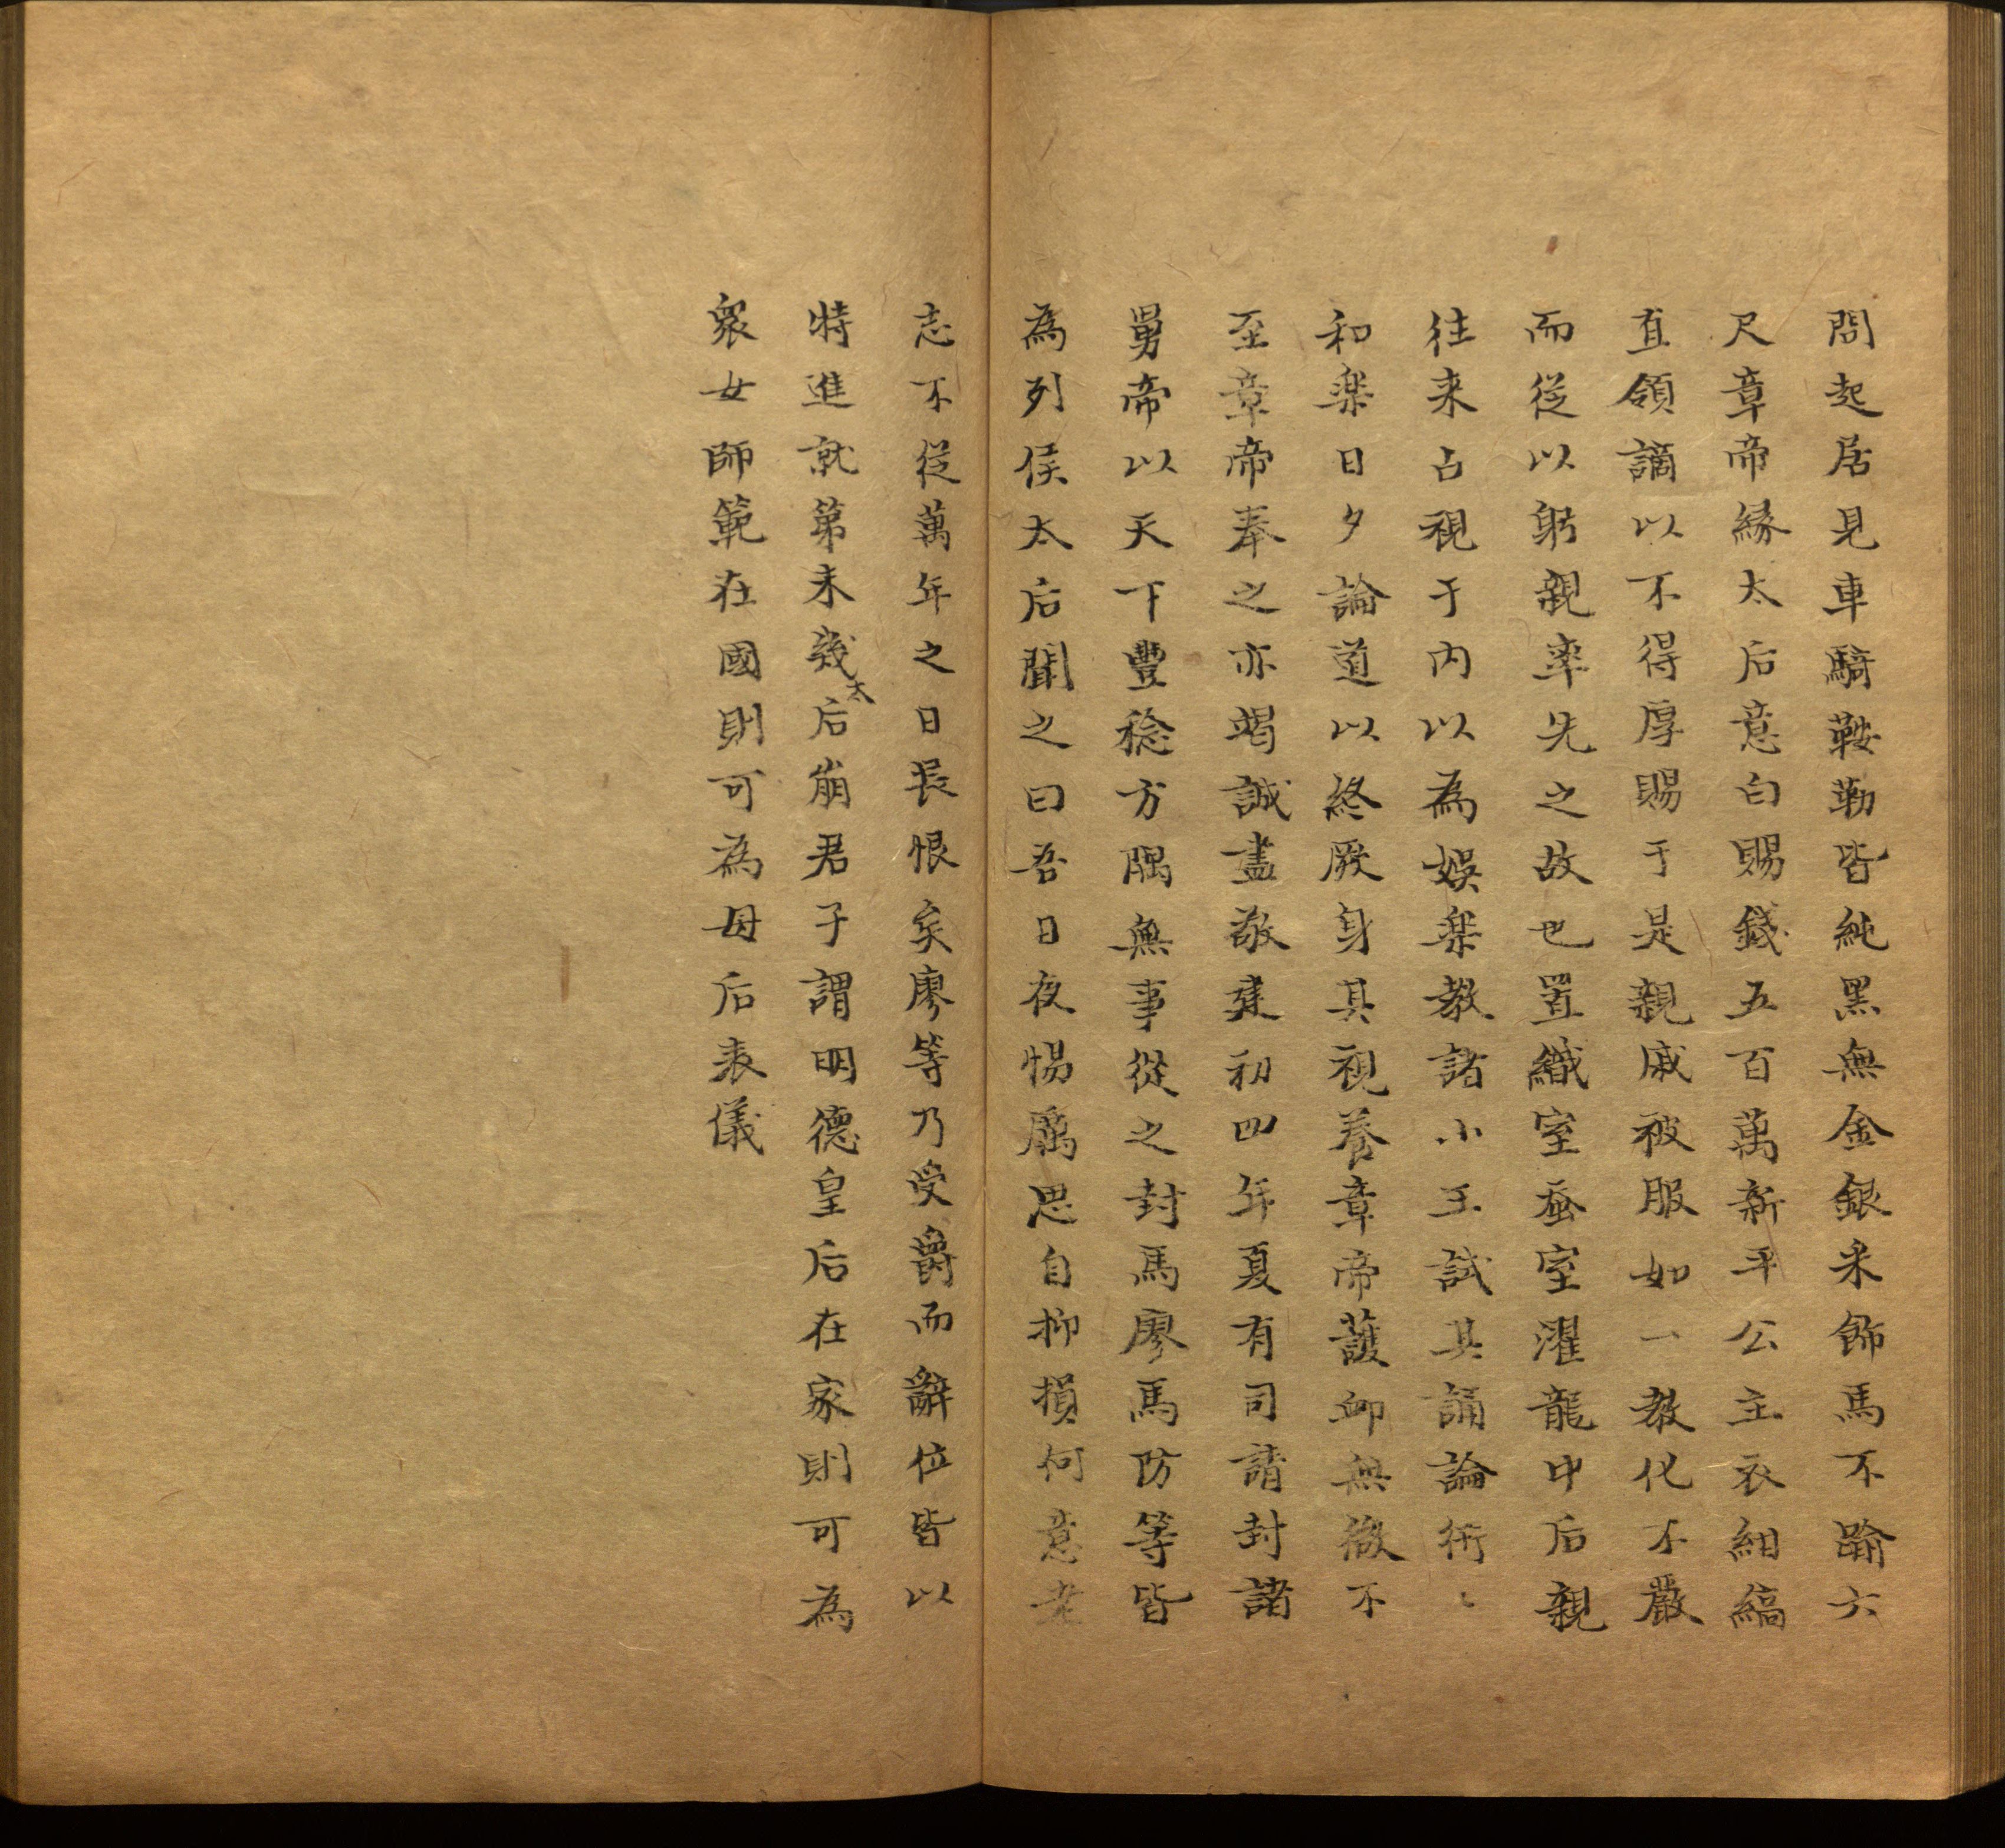 問起居見車騎鞍勒皆純黑無金銀采飾馬不踰六
尺章帝緣太后意白賜錢五百萬新平公主衣紺縞
直領謫以不得厚賜于是親戚被服如一教化不嚴
而從以躬親率先之故也置織室蚕室濯龍中后親
往来占視于内以為娛楽教諸小王試其誦論衎〻
和楽日夕論道以終厥身其視養章帝護邺無微不
至章帝奉之亦竭誠盡敬建初四年夏有司請封諸
舅帝以天下豐稔方隅無事從之封馬廖馬防等皆
為列侯太后聞之曰吾日夜惕厲思自抑損何意老
志不從萬年之日長恨矣廖等乃受爵而辭位皆以
特進就第未幾太后崩君子謂明德皇后在家則可為
衆女師範在國則可為母后表儀